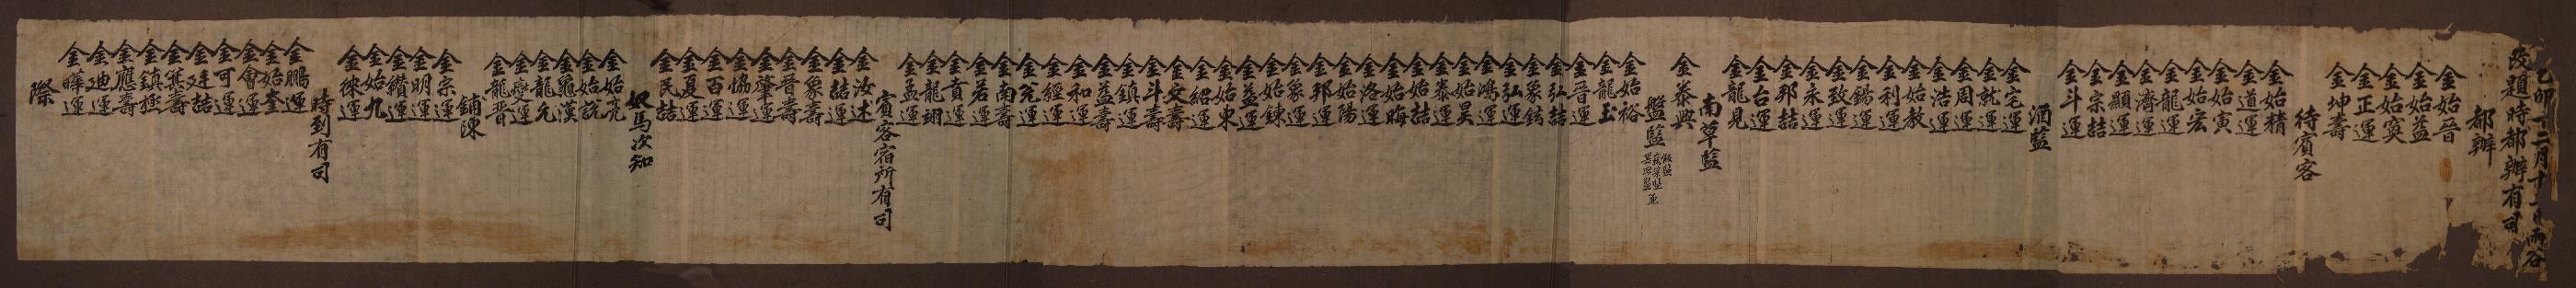 乙卯十二月十一日雨谷
改題時都辦有司
都辦
金始晉
金始益
金始寞
金正運
金坤壽
待賓客
金始精
金道運
金始寅
金始宏
金龍運
金濟運
金顯運
金宗喆
金斗運
酒監
金宅運
金就運
金周運
金浩運
金始教
金利運
金錫運
金致運
金永運
金邦喆
金台運
金龍見
南草監
金泰興
盤監
金始裕
金龍玉
金晉運
金弘喆
金象鎬
金弘運
金鴻運
金始昊
金泰運
金始喆
金始晦
金洛運
金始陽
金邦運
金象運
金始鍊
金益運
金始東
金紹運
金文壽
金斗壽
金鎮運
金益壽
金和運
金經運
金兗運
金南壽
金若運
金貴運
金龍翊
金孟運
賓客宿所有司
金汝述
金喆運
金象壽
金晉壽
金肇運
金協運
金百運
金夏運
金民喆
奴馬次知
金始亮
金始說
金龜漢
金龍允
金夔運
金龍晋
鋪陳
金宗運
金明運
金纘運
金始九
金徠運
時到有司
金鵬運
金始奎
金會運
金可運
金廷喆
金箕壽
金鎮極
金應壽
金迪運
金曄運
際